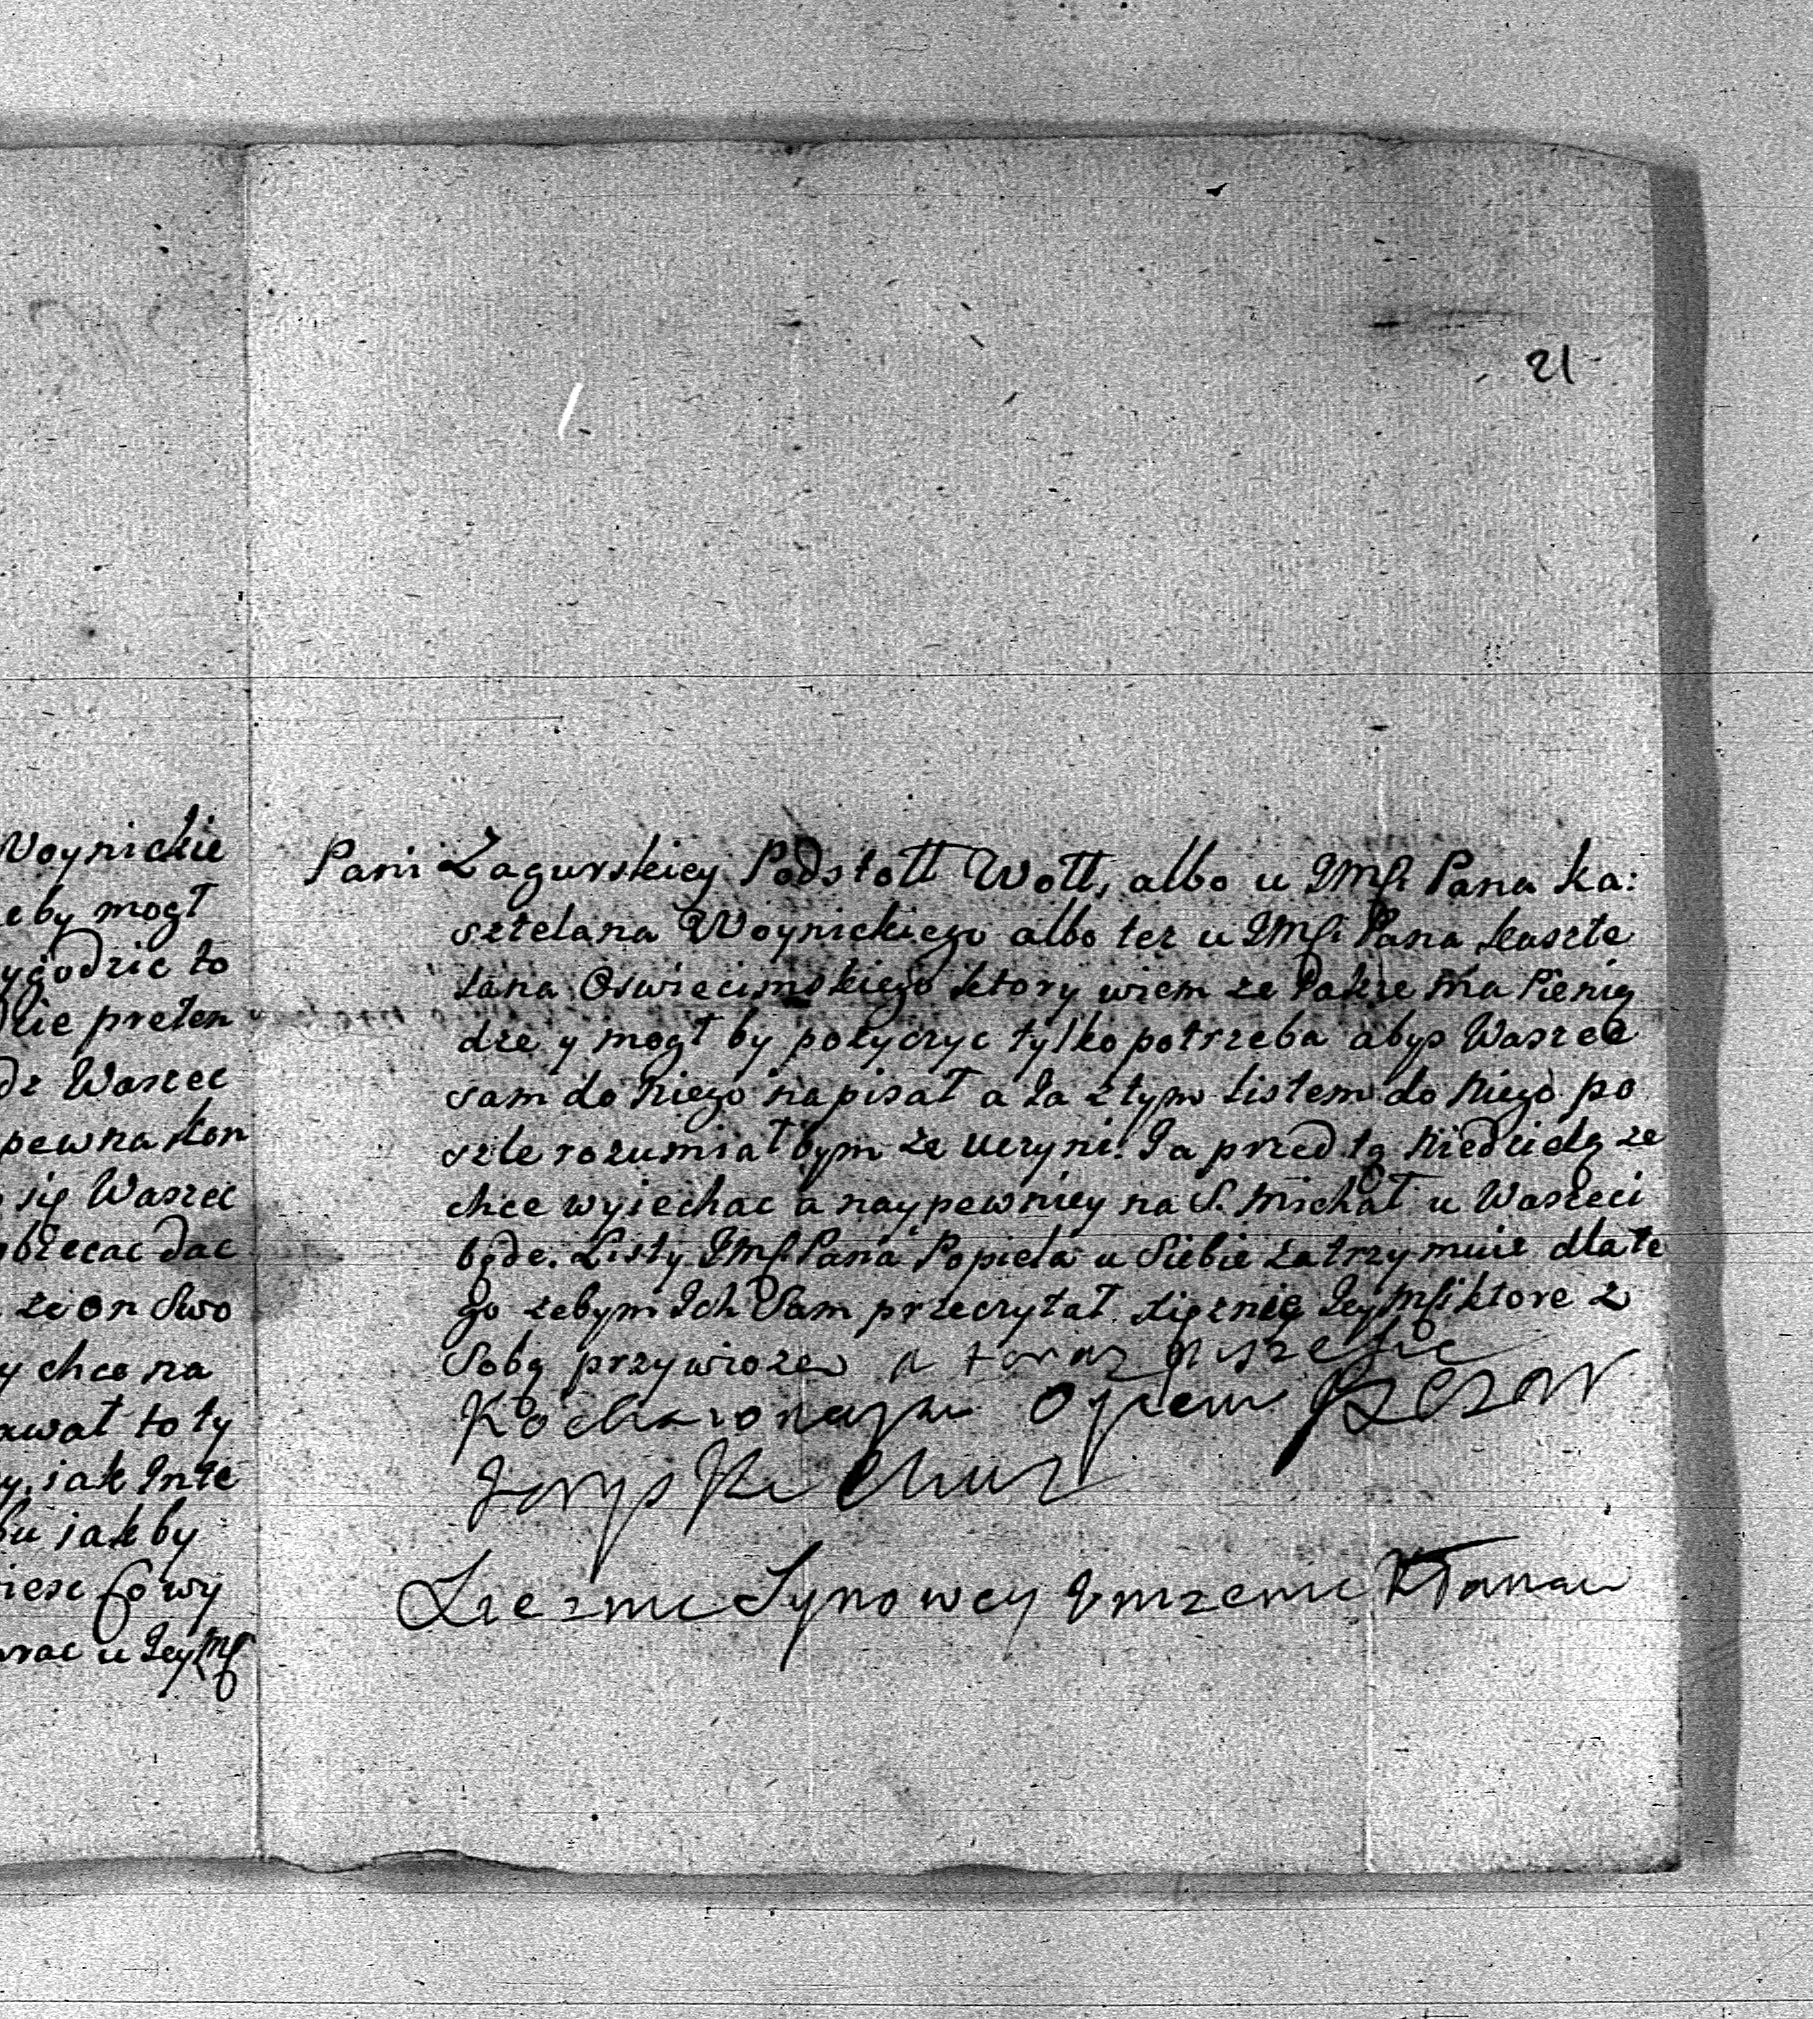 21
Woynickie
eby mogł
ygodzic to
dzie preten
dz Waszec
pewna kon
się Waszec
obiecac dac
ze on Swo
y chce na
awał to ty
y, iak Inte
bu iakby
wy
rac u Jey Mś
Pani Zagurskiey Podstoll Woll, albo u JMśi Pana Ka:
sztelana Woynickiego albo tez u JMśi Pana kaszte
lana Oswiecimskiego ktory wiem ze takze ma Pienią
dze y mogł by pozyczyc tylko potrzeba abys Waszec
sam do Niego napisał a Ia z tym Listem do Niego po
szle rozumiał bym ze uczyni. Ia przed tą Niedzielą ze
chce wyiechac a naypewniey na S. Michał u Waszeci
będe. Listy JMśi Pana Popiela u Siebie zatrzymuie dlate
go zebym Ich Sam przeczytał. Jey Mśi ktore z
Sobą przywioze a teraz piszesie
Kochaionym Oycem
Synowey